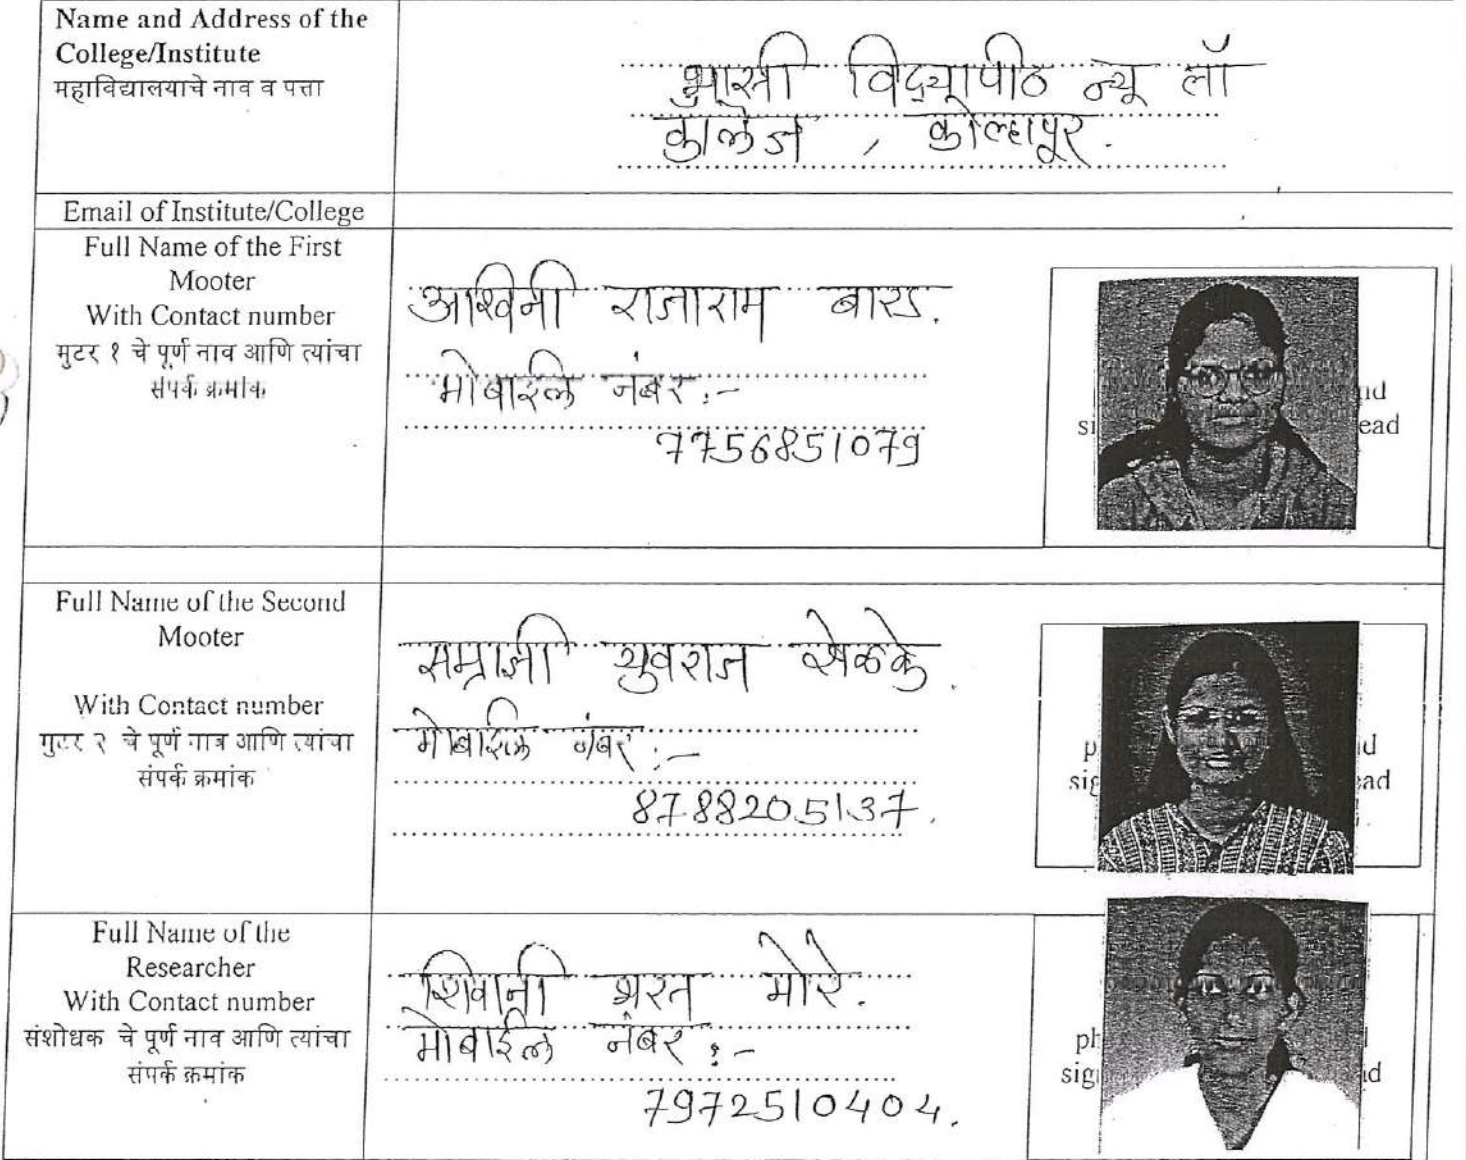 Name and Address of the
College/Institute
महाविद्यालयाचे नाव व पत्ता
विद्यापीठ न्यू लॉ
कॉलेज , कोल्हापूर.
Email of Institute/College
Full Name of the First
Mooter
With Contact number
मुटर १ चे पूर्ण नाव आणि त्यांचा
संपर्क क्रमांक
अश्विनी राजाराम बारड.
मोबाईल नंबर :-
7756851079
Full Name of the Second
Mooter
With Contact number
मुटर २ चे पूर्ण नाव आणि त्यांचा
संपर्क क्रमांक
सम्राज्ञी युवराज शेळके.
मोबाईल नंबर :-
8788205137.
Full Name of the
Researcher
With Contact number
संशोधक चे पूर्ण नाव आणि त्यांचा
संपर्क क्रमांक
शिवानी भरत मोरे.
मोबाईल नंबर :-
7972510404.